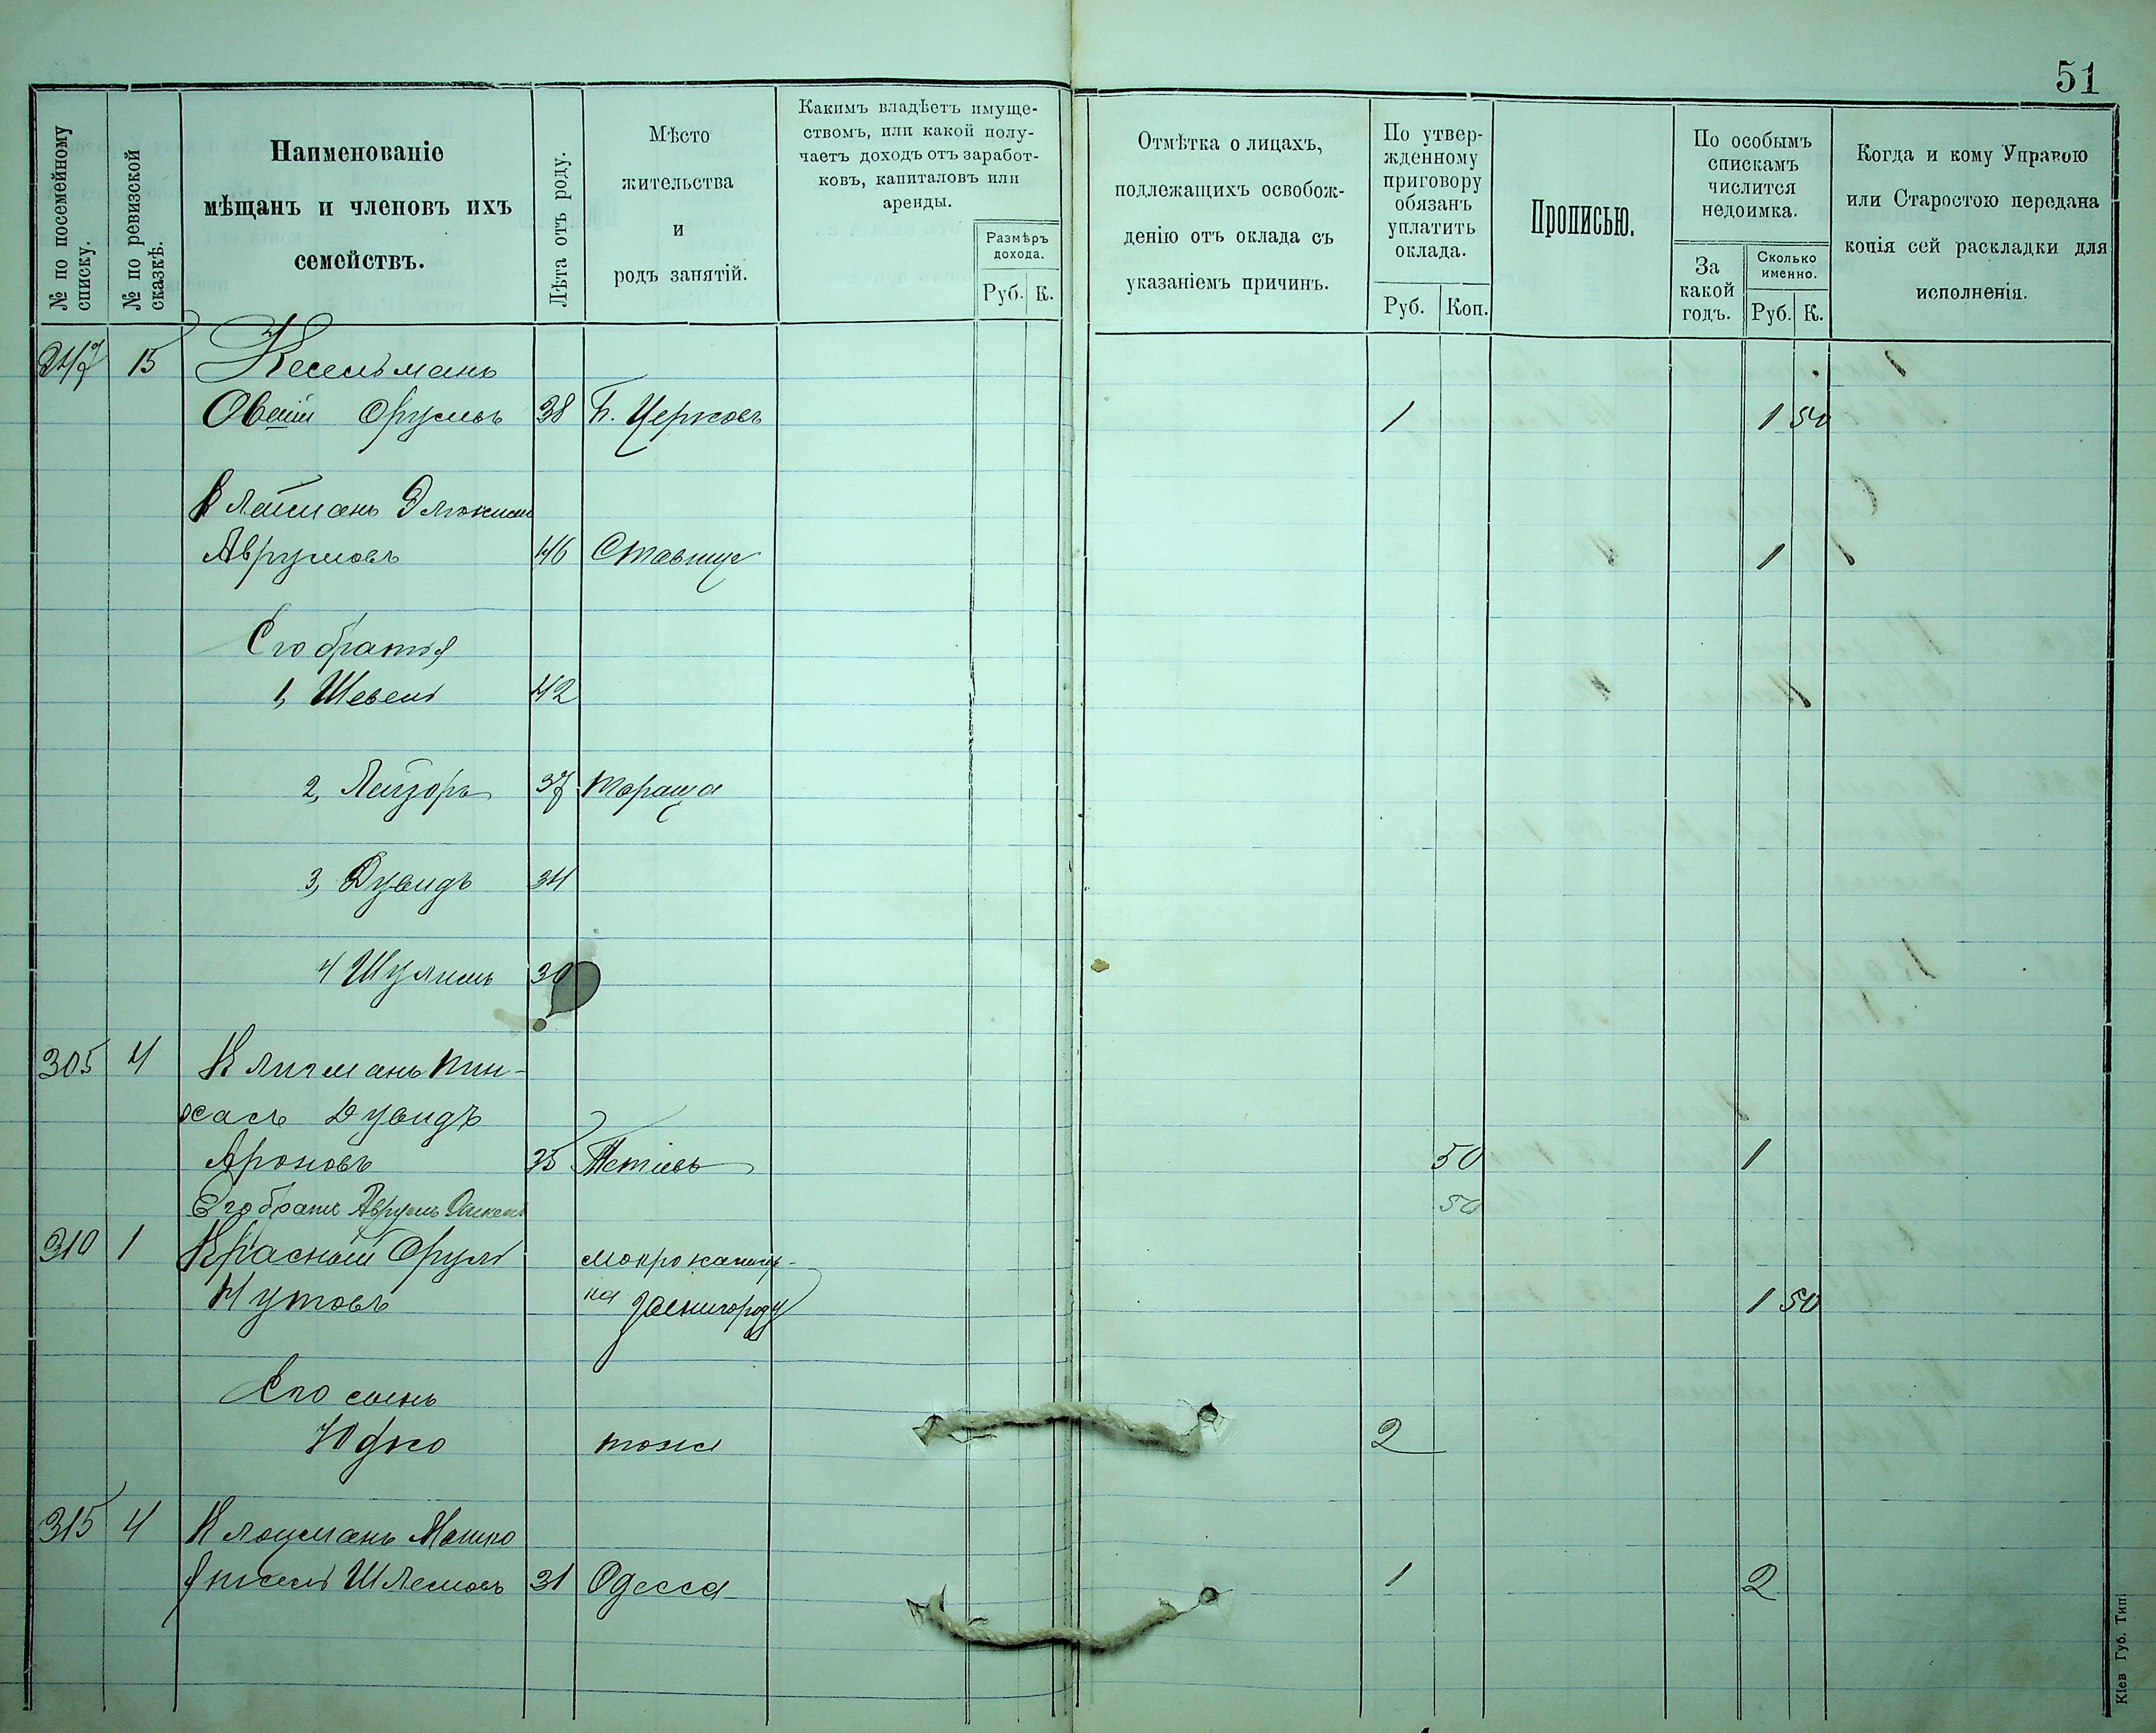 51
№ по посемейному списку.
№ по ревизской сказкѣ.
Наименованіе
мѣщанъ и членовъ ихъ
семействъ.
Лѣта отъ роду.
Мѣсто
жительства
и
родъ занятій.
Какимъ владѣетъ имуще-
ствомъ, или какой полу-
чаетъ доходъ отъ заработ-
ковъ, капиталовъ или
аренды.
Размѣръ
дохода.
Руб. К.
Отмѣтка о лицахъ,
подлежащихъ освобож-
денію отъ оклада съ
указаніемъ причинъ.
По утвер-
жденному
приговору
обязанъ
уплатить
оклада.
Руб. Коп.
Прописью.
По особымъ
спискамъ
числится
недоимка.
За
какой
годъ.
Сколько
именно.
Руб. К.
Когда и кому Управою
или Старостою передана
копія сей раскладки для
исполненія.
247 15 Кесельманъ
Овшій Срулевъ 38 Б. Церковь 1 1 50
Клейманъ
Аврумовъ 46 Ставище 1
Его братья
1, Шевель 42
2, Лейзоръ 37 Тараща
3, Дувидъ 34
4 Шулимъ 30
305 4 Клигманъ Пин-
хасъ Дувидъ
Ароновъ 35 Тетіевъ 50 1
Его братъ Аврумъ 50
310 1 Красный Сруль
Нутовъ на Звенигороду 1 50
Его сынъ
Юдко тоже 2
315 4 Клоцманъ Мошко
Шлемовъ 31 Одесса 1 2
Кіев Губ. Тип.